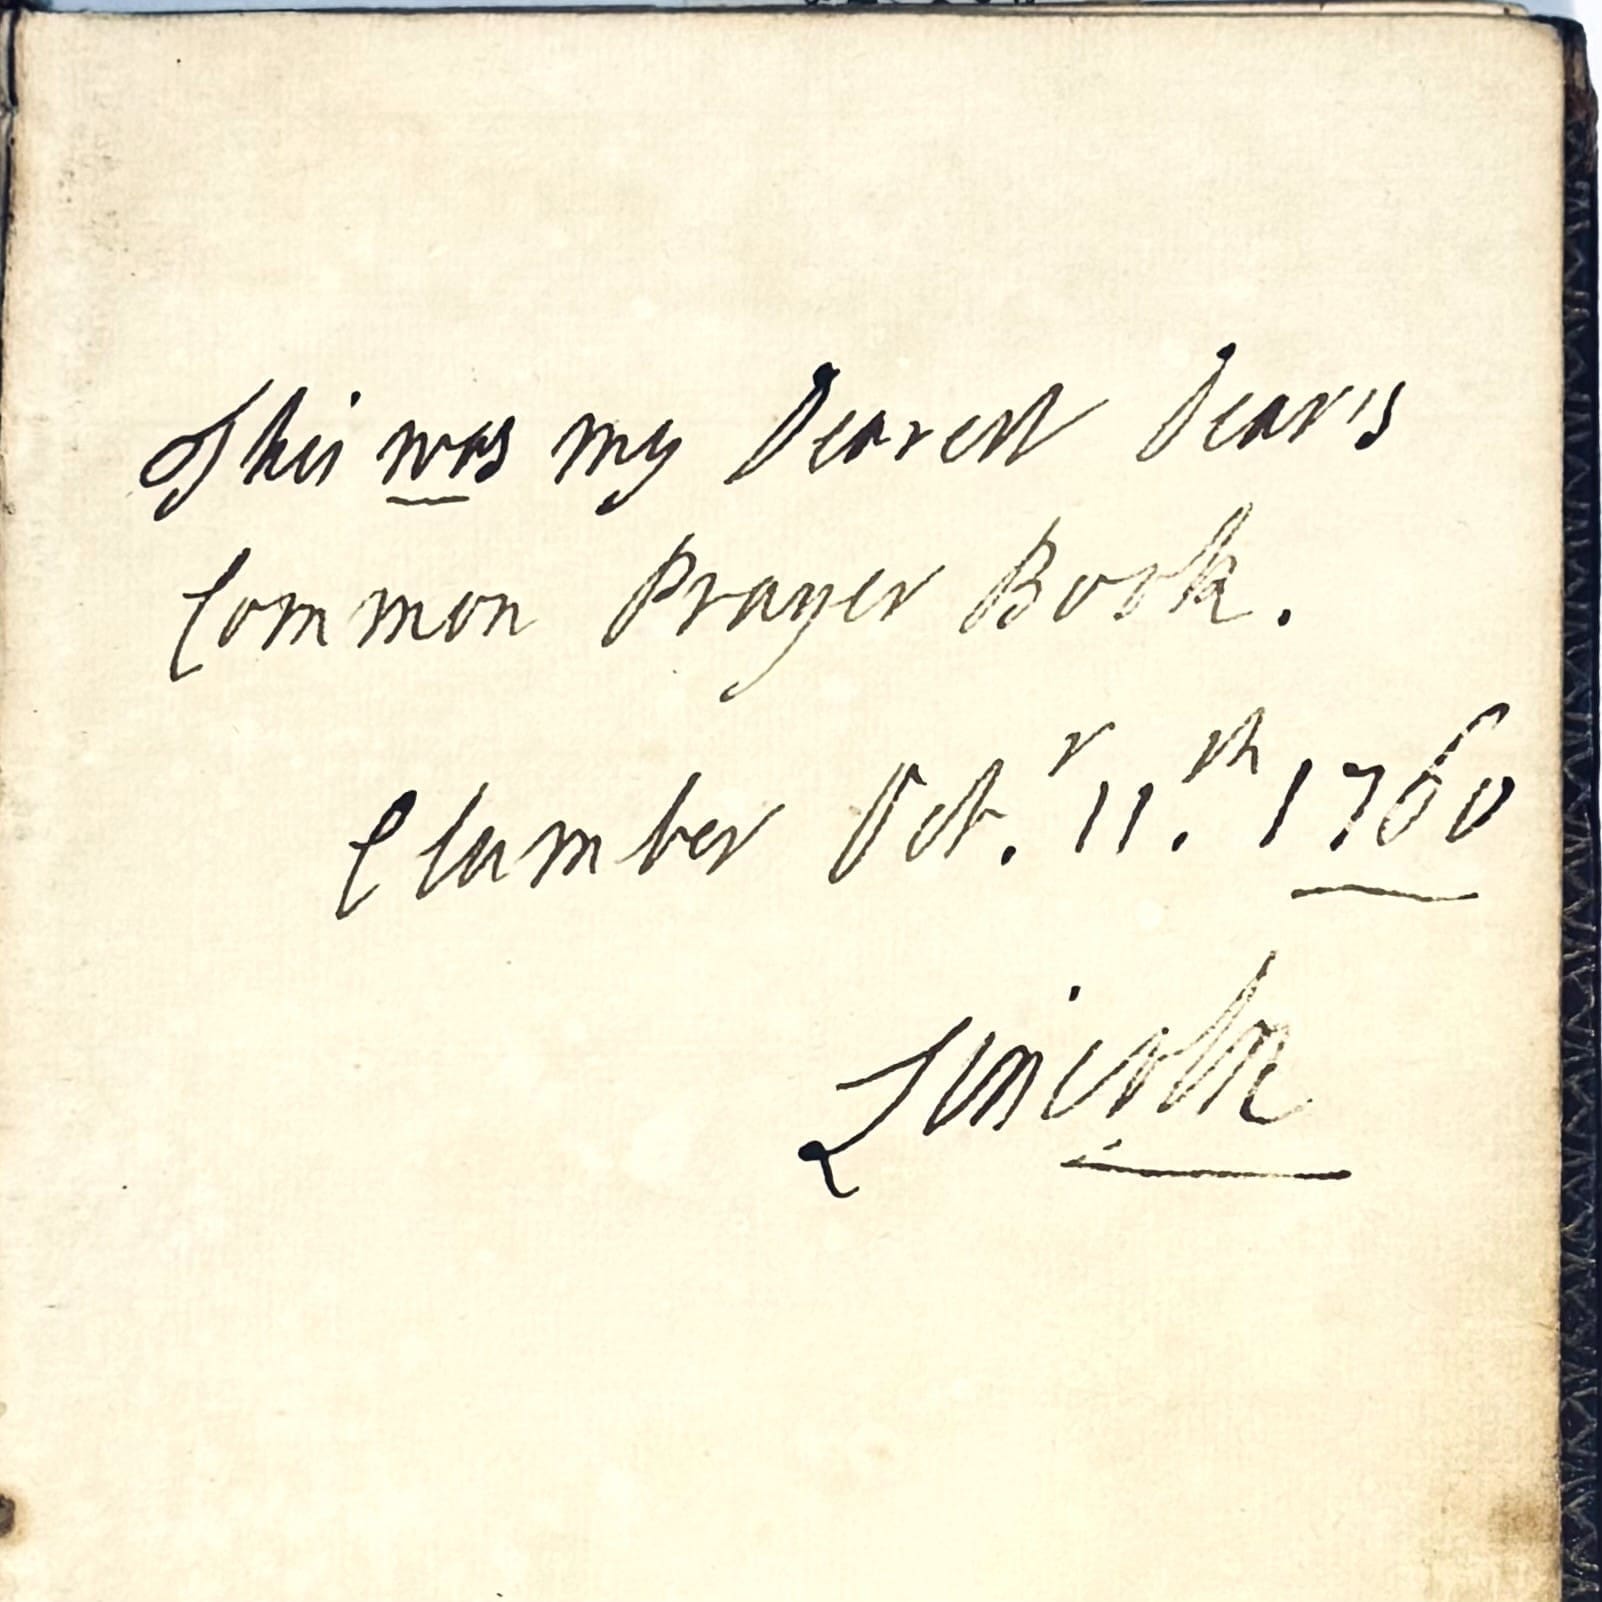 This was my Dearest Dear's
Common Prayer Book.
Clumber Octr. 11.th 1760
Lincoln